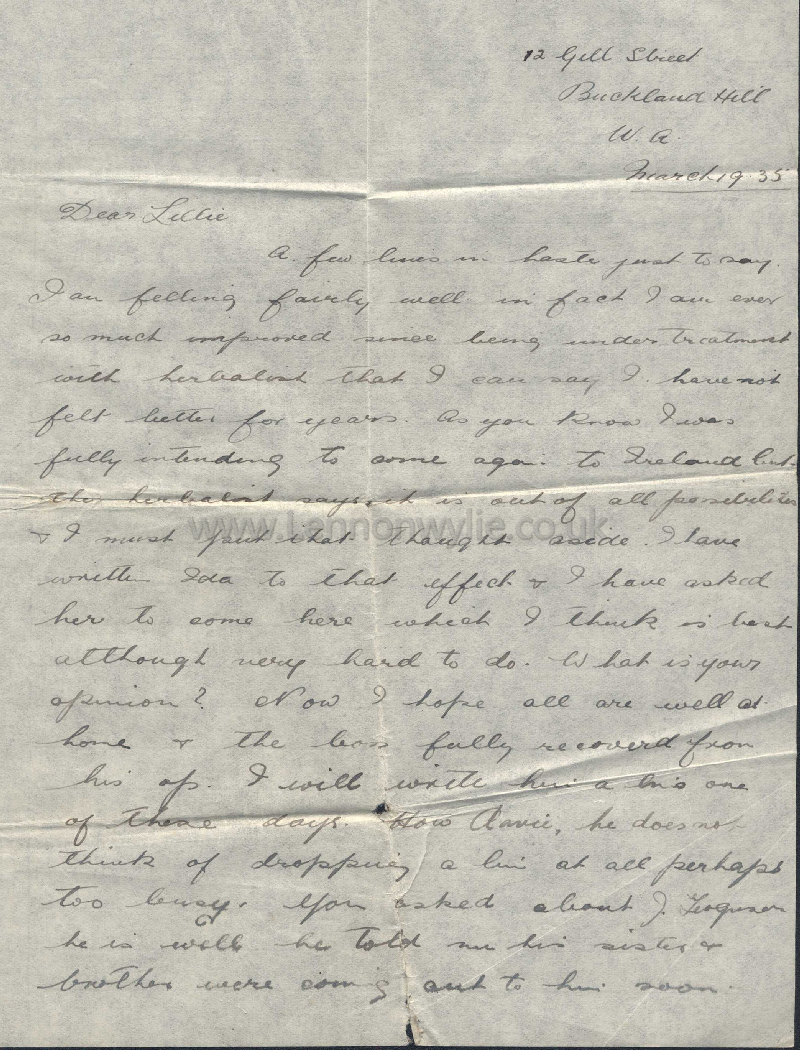 12 Gill Street
Buckland Hill
W. A.
March 19 35
Dear Lillie
A few lines in haste just to say
I am felling fairly well in fact I am ever
so much improved since being under treatment
with herbalist that I can say I have not
felt better for years. As you know I was
fully intending to come again to Ireland but
the herbalist says it is out of all posibilities
& I must put that thought aside. I have
written Ida to that effect & I have asked
her to come here which I think is best
although very hard to do. What is your
opinion? Now I hope all are well at
home & the boss fully recoverd from
his op. I will write him a line one
of these days. How he does not
think of dropping a line at all perhaps
too busy. You asked about J. Ferguson
he is well he told me his sister &
brother were coming out to him soon.
www.Lennonwylie.co.uk